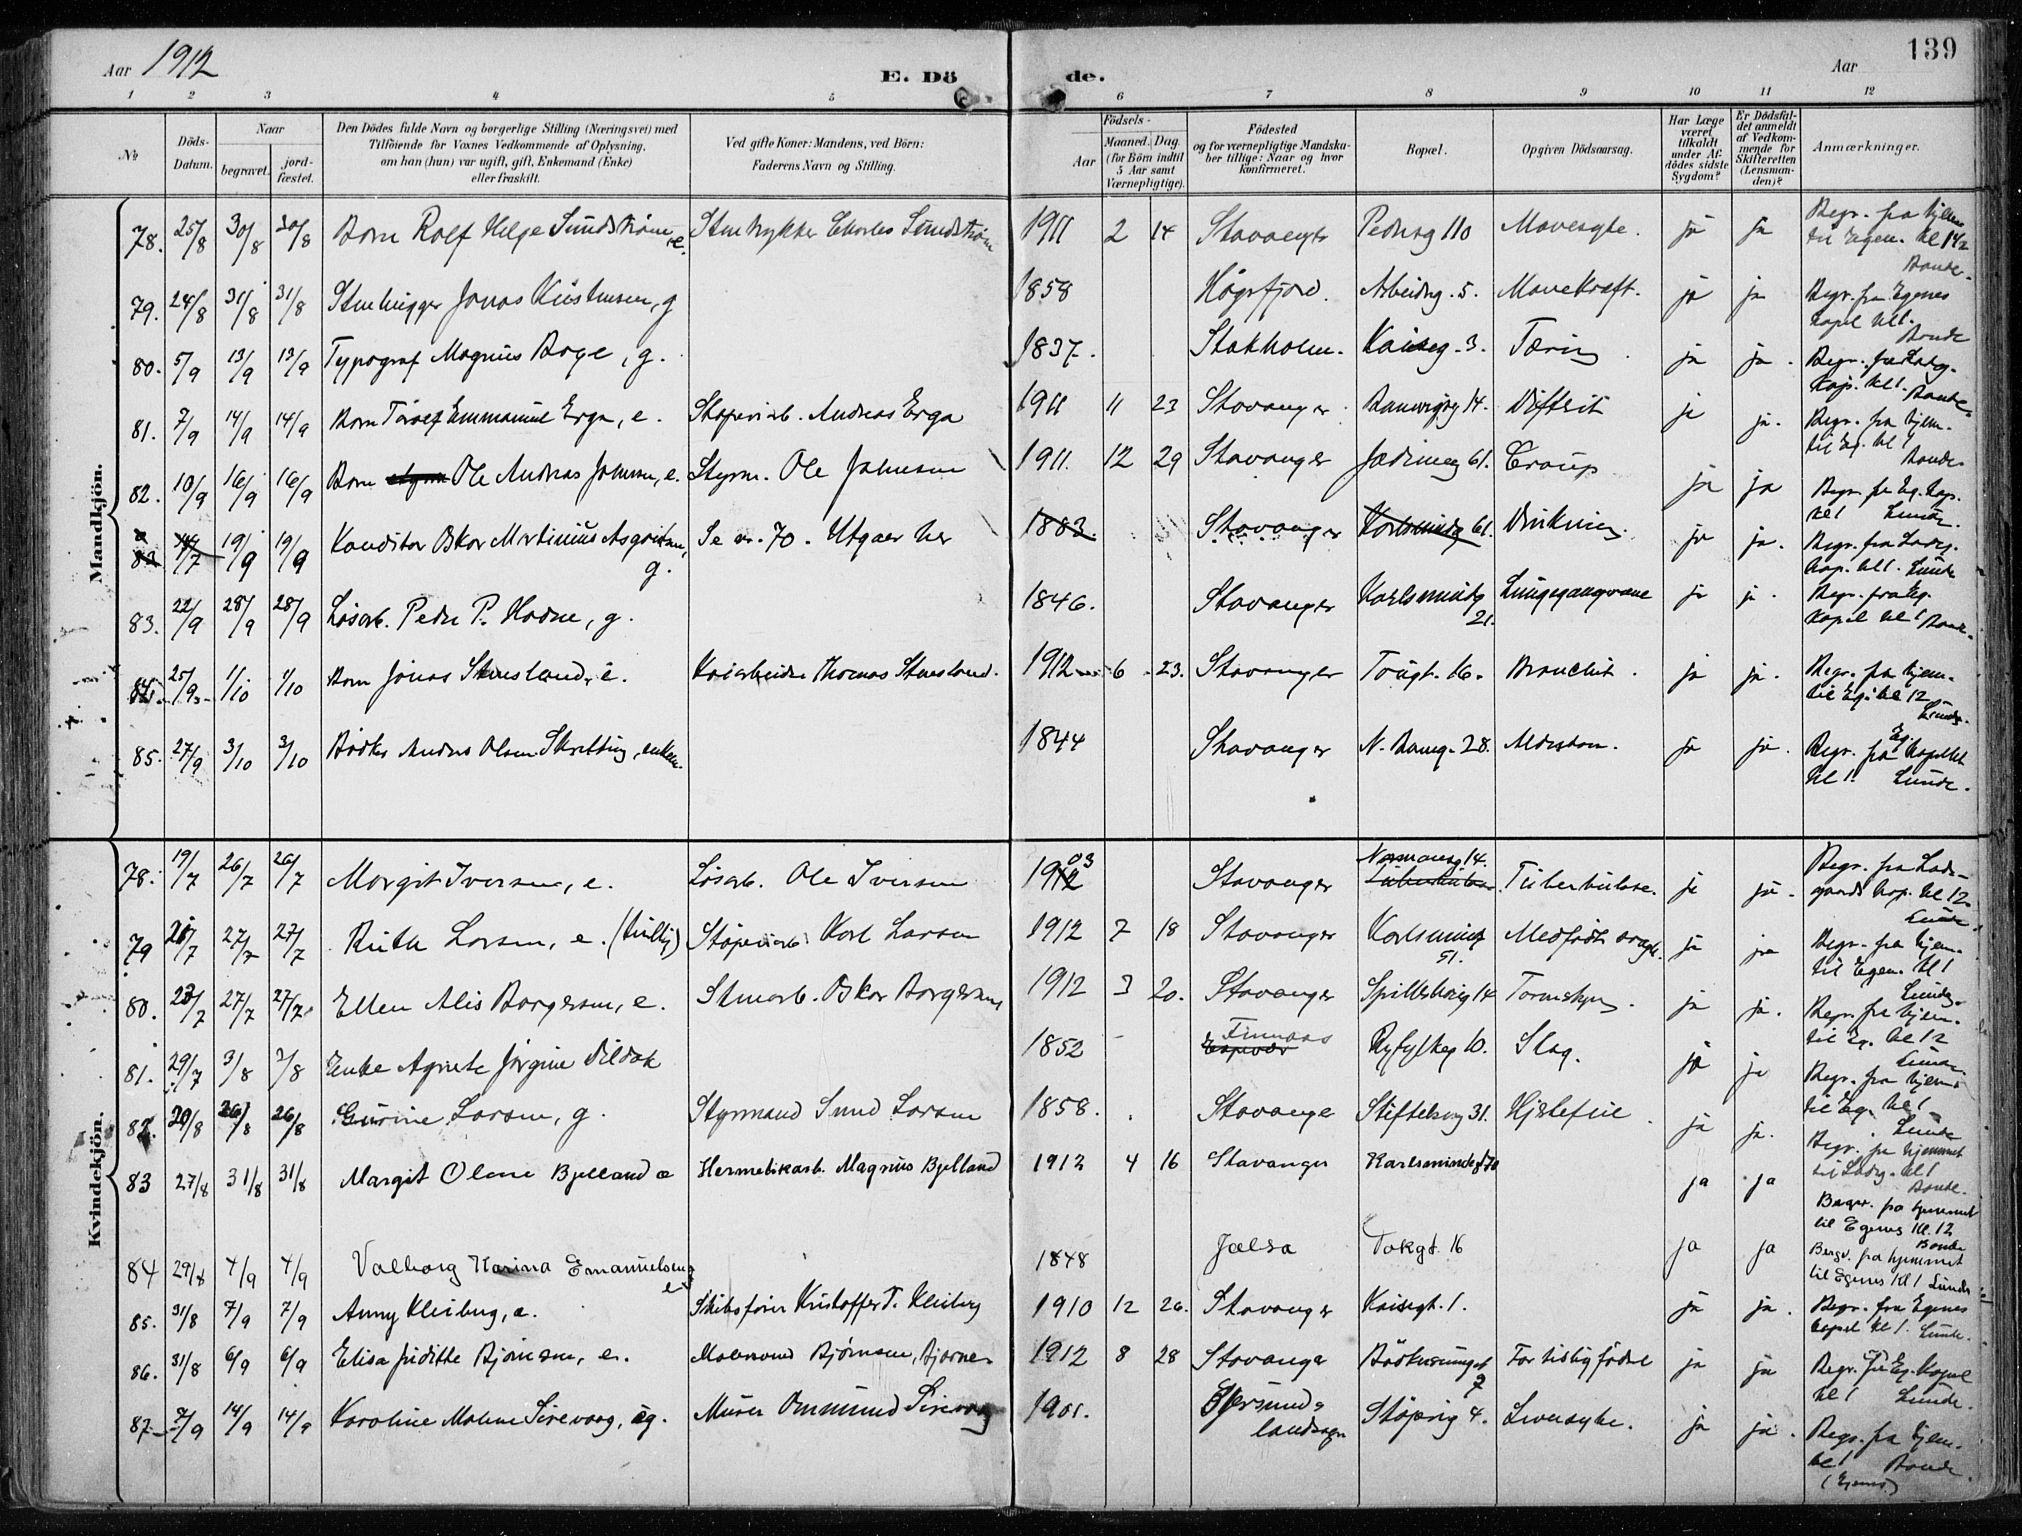 139
Aar 1912
E. Dö de.
Aar
1 2 3 4 5 6 7 8 9 10 11 12
№
Döds-Datum.
Naar
begravet.
jord-fæstet.
Den Dödes fulde Navn og borgerlige Stilling (Næringsvei) med
Tilföiende for Voxnes Vedkommende af Oplysning,
om han (hun) var ugift, gift, Enkemand (Enke)
eller fraskilt.
Ved gifte Koner: Mandens, ved Börn:
Faderens Navn og Stilling.
Födsels-
Aar
Maaned. Dag
(for Börn indtil
5 Aar samt
Værnepligtige).
Födested
og for værnepligtige Mandska-
ber tillige: Naar og hvor
konfirmeret.
Bopæl.
Opgiven Dödsaarsag.
Har Læge
været
tilkaldt
under Af-
dödes sidste
Sygdom?
Er Dödsfal-
det anmeldt
af Vedkom-
mende for
Skifteretten
(Lensman-
den)?
Anmærkninger.
Mandkjön.
78. 25/8 30/8 30/8 Barn Rolf Helge Sundstrøm, e. Stentrykker Charles Sundstrøm 1911 2 14 Stavanger Pedersg 110 Mavesyke. ja ja
Begr. fra hjem
til Egen. kl 1 1/2
Bonde.
79. 24/8 31/8 31/8 Stenhugger Jonas Kristensen, g 1858 Høgsfjord. Arbeiderg. 5. Mavekræft. ja ja
Begr. fra Egenes
kapel kl 1.
Bonde
80. 5/9 13/9 13/9 Typograf Magnus Boge, g. 1837. Stokholm. Kaiseg. 3. Tæring ja ja.
Begr. fra Ladeg.
Kap. kl 1. Bonde.
81. 7/9 14/9 14/9 Barn Emmanuel Erga, e. Støperiarb. Andreas Erga 1911 11 23 Stavanger 14. Difterit ja ja.
Begr. fra hjem.
til Eg. kl 1
Bonde
82. 10/9 16/9 16/9 Barn Ole Andreas Johnsen, e. Styrm. Ole Johnsen 1911. 12 29 Stavanger Jædervieg 61. Croup ja ja
Begr. fra Eg. kap.
kl 1 Lunde.
19/9 19/9 Konditor Oskar Martinius g. Se nr. 70. Utgaar her 1883. Stavanger 61. Drukning ja ja.
Begr. fra Ladeg.
kap. kl 1. Lunde
83. 22/9 28/9 28/9 Løsarb. Peder P. Hodne, g. 1846. Stavanger Karlsmindg 21. ja ja.
Begr. fra Eg.
kapel kl 1 Bonde.
84. 25/9 1/10 1/10 Barn Jonas Stensland, e. Kaiarbeider Thomas Stensland. 1912 6 23. Stavanger 16. Bronchit. ja ja.
Begr. fra hjem-
til Eg. kl 12
Lunde.
85. 27/9 3/10 3/10 Bødker Anders Olsen Skretting, enkem. 1844 Stavanger N. Bang. 28. Alderdom. ja ja.
Begr. fra Eg. kapellet
kl 1. Lunde.
Kvindekjön.
78. 19/7 26/7 26/7 Margit Iversen, e. Løsarb. Ole Iversen 1903 Stavanger Normansg 14. Tuberkulose. ja ja.
Begr. fra Lade-
gaards kap. kl 12
Lunde.
79 27/7 27/7 Ruth Larsen, e. (tvilling) Støperiarb. Karl Larsen 1912 7 18 Stavanger Karlsmindg 51. Medfødt svagh. ja ja
Begr. fra hjem-
til Egen. kl 1
Lunde.
80. 23/7 27/7 27/7 Ellen Alis Borgersen, e. Stenarb. Oskar Borgersen 1912 3 20. Stavanger 14 ja ja.
Begr. fra hjem-
til Eg. kl 12
Lunde.
81. 29/7 3/8 3/8 Enke Agnete Jørgine Vildak 1852 Finnaas Ryfylkeg 10. Slag. ja ja
Begr. fra hjem-
til Eg. kl 1
Lunde
82. 20/8 26/8 26/8 Gurine Larsen, g. Styrmand Larsen 1858. Stavange Stiftelseg 31. Hjertefeil. ja ja.
Begr. fra hjemmet
til Ladeg. kl 1
Bonde.
83 27/8 31/8 31/8 Margit Olene Bjelland e Hermetikarb. Magnus Bjelland 1912 4 16 Stavanger Karlsmindegt 70 ja ja
Begr. fra hjemmet
til Egenes kl. 12
Bonde
84 29/8 4/9 4/9 Valborg Karina Emanuelsen 1848 Jælsa Vakgt. 16 ja ja
Begr. fra hjemmet
til Egenes kl 1 Lunde
85. 31/8 7/9 7/9 Anny Kleiberg, e. Skibsfører Kristoffer T. Kleiberg 1910 12 26. Stavanger Kaisegt. 1. ja ja.
Begr. fra Egenes
kapel kl 1. Lunde.
86. 31/8 6/9 6/9 Elisa Juditte Bjørnsen, e. Bjørnsen, Bjarne 1912 8 28 Stavanger 7 For tidlig fødsel ja ja
Begr. fra Eg. kapel
kl 1 Lunde.
87. 7/9 14/9 14/9 Karoline Malene Sirevaag, ug. Murer Ommund Sirevaag 1901. Egersunds
landsogn Støperig 4. ja ja.
Begr. fra hjem-
kl 1 Bonde
(Egenes)